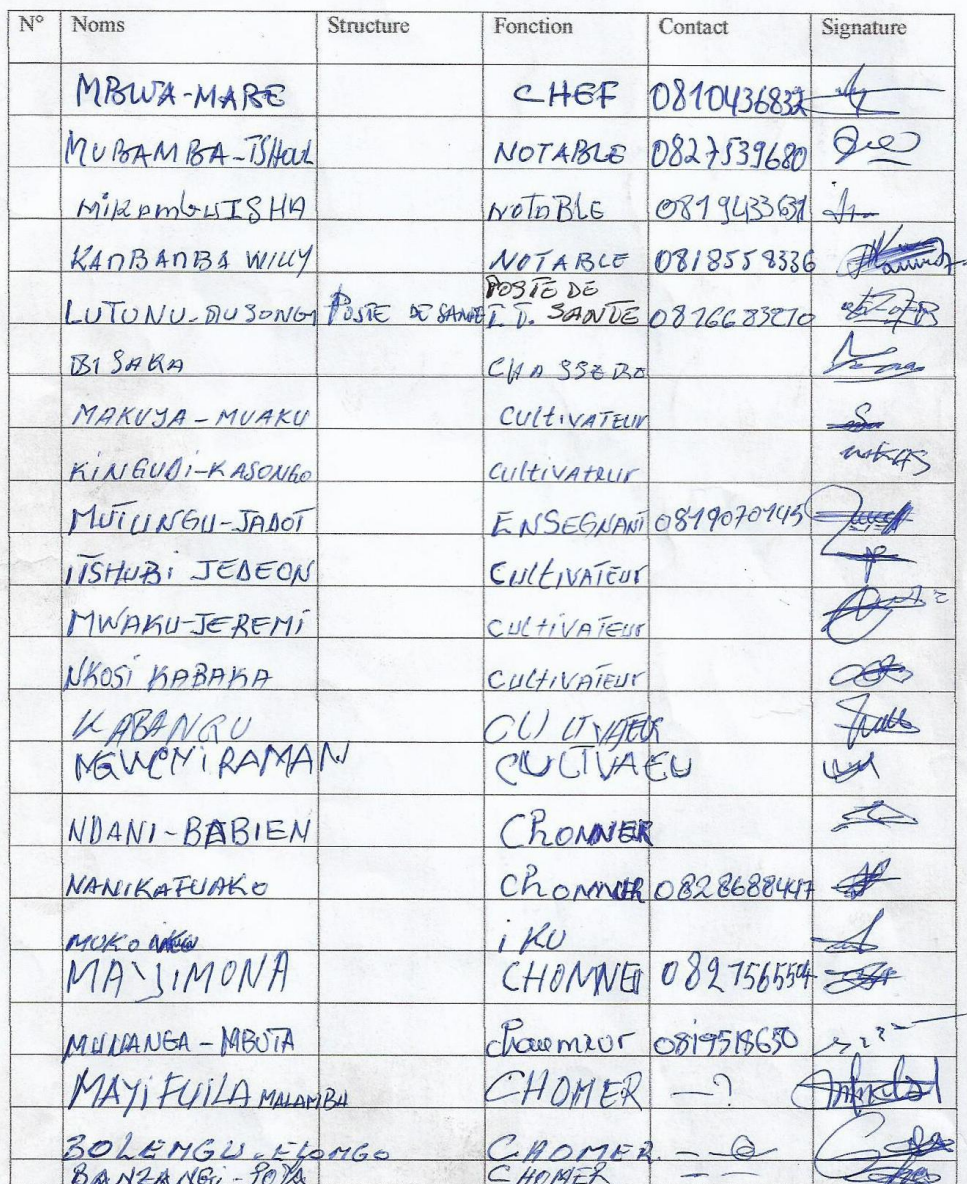 N° Noms Structure Fonction Contact Signature
MBWA-MARE CHEF 0810436832
MUBAMBA-TSHAUL NOTABLE 0827539680
MIKOMBWISHA NOTABLE 0819433631
KAMBAMBA WILLY NOTABLE 0818558336
LUTUNU-MUSONGI POSTE DE SANTE POSTE DE
I.T. SANTE 0816683210
BISAKA
MAKUYA-MUAKU CULTIVATEUR
KINGUDI-KASONGO CULTIVATEUR
MUTUNGU-JADOT ENSEGNANT 0819070145
ITSHUBI JEDEON CULTIVATEUR
MWAKU-JEREMI CULTIVATEUR
NKOSI KABAKA CULTIVATEUR
KABANGU CULTIVATEUR
RAMAN CULTIVAEU
NDANI-BABIEN CHONNER
NANIKAFUAKO CHONNER 0828688447
MUKO IKU
MAYIMONA CHONNE
MUNANGA-MBUTA 0819518650
MAYIFUILA MALAMBU CHOMER - ?
BOLEMGU-ELOMGO CHOMER
BANZANGI-POYA CHOMER